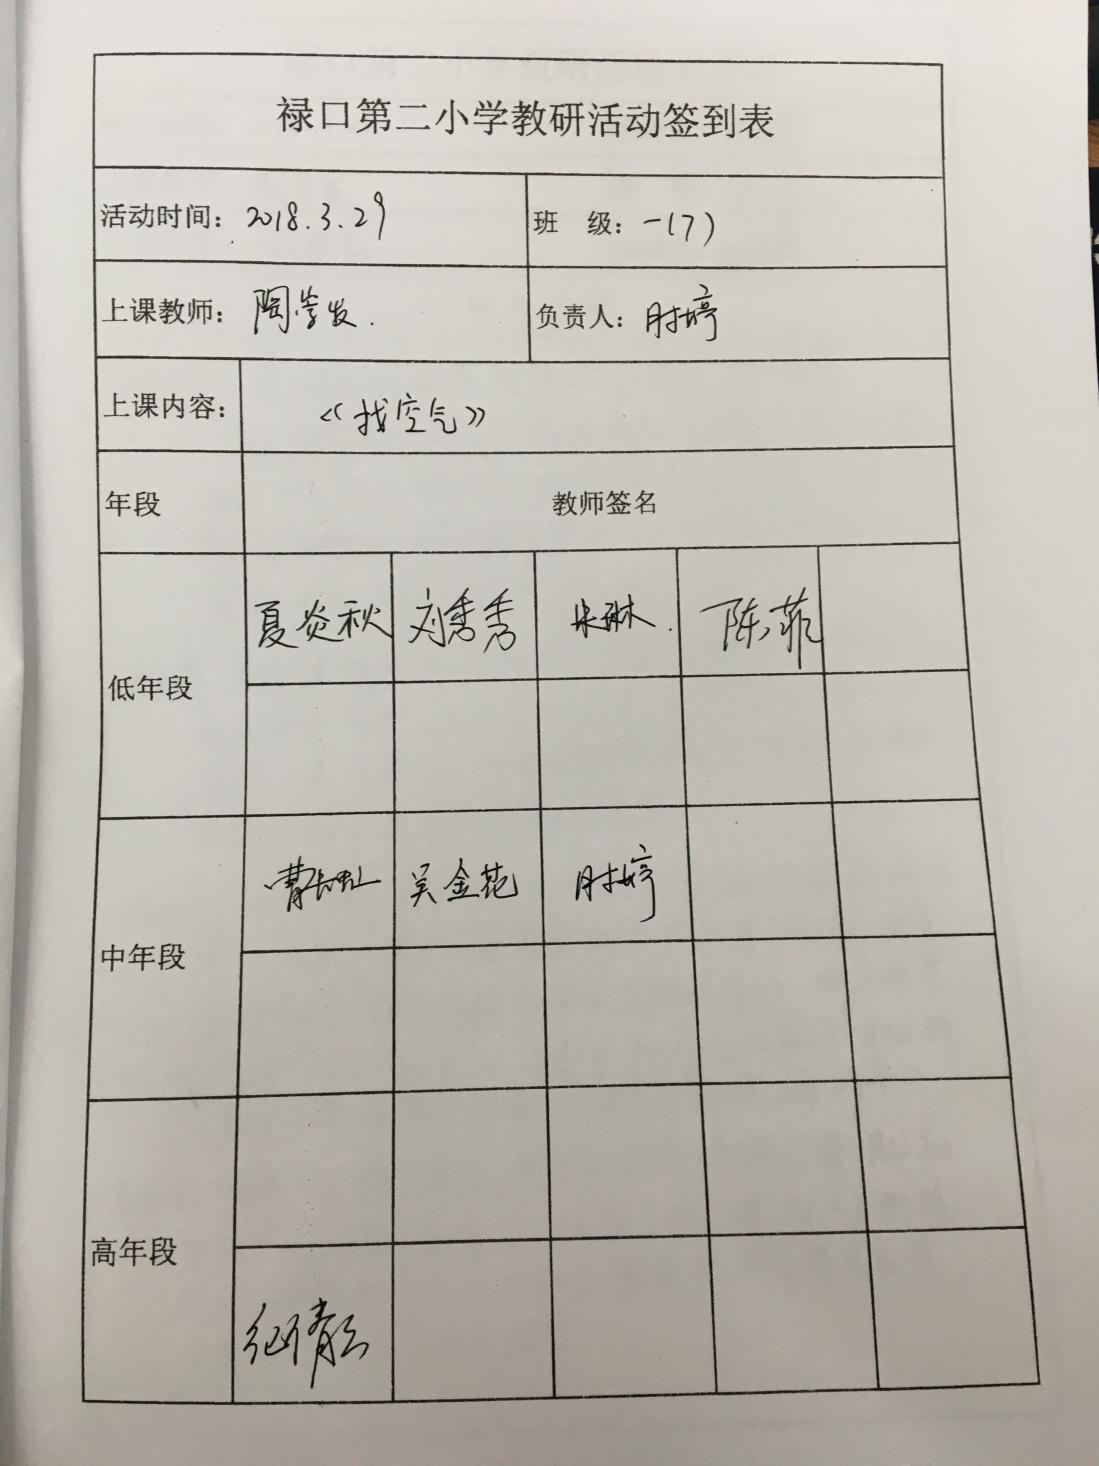 禄口第二小学教研活动签到表
活动时间：2018.3.29 班 级：一(7)
上课教师：陶 负责人：时婷
上课内容：《找空气》
年段 教师签名
夏炎秋 刘秀秀 朱琳. 陈菲
低年段
曹 吴金花 时婷
中年段
高年段